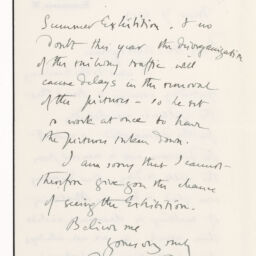 Summer Exhibition. & no
doubt this year the disorganization
of the railway traffic will
cause delays in the removal
of the pictures – so he set
to work at once to have
the pictures taken down.
I am sorry that I cannot
therefore give you the chance
of seeing the Exhibition.
Believe me
yours very truly